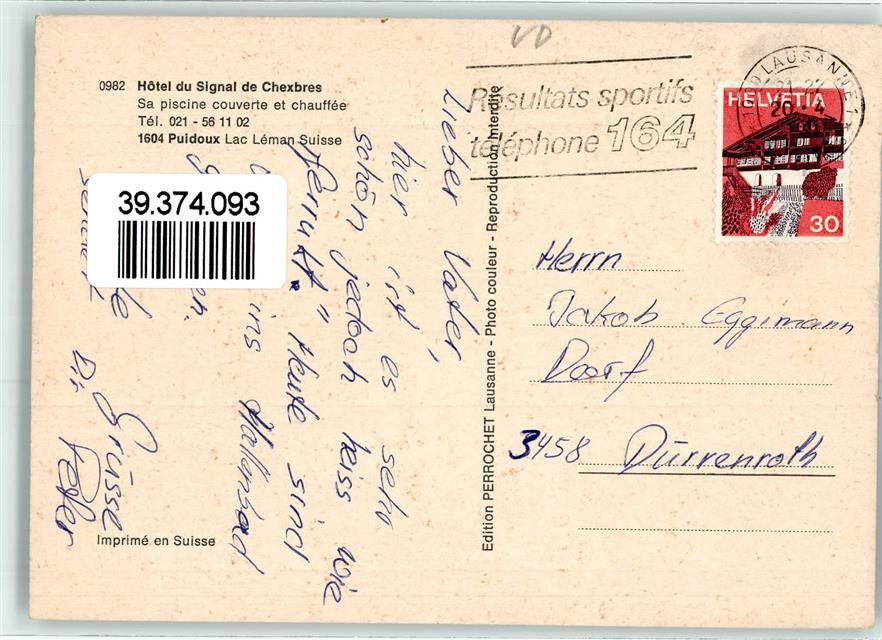 0982 Hôtel du Signal de Chexbres
Sa piscine couverte et chauffée
Tél. 021 - 56 11 02
1604 Puidoux Lac Léman Suisse
VD
Résultats sportifs
téléphone 164
LAUSANNE
HELVETIA
30
39.374.093
Lieber Vater,
hier ist es sehr
schön jedoch heiss wie
Heute sind
ins Hallenbad
Grüsse
Dir
Peter
Edition PERROCHET Lausanne - Photo couleur - Reproduction interdite
Herrn
Jakob Eggimann
Dorf
3458 Dürrenroth
Imprimé en Suisse